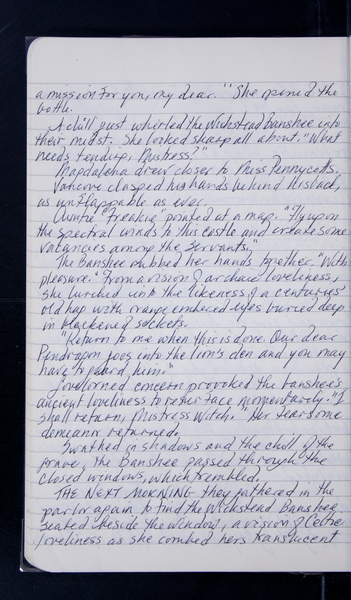 a mission for you, my dear." She opened the
bottle.
A chill gust whirled the Wickstead Banshee into
their midst. She looked sharp all about. "What
needs tending, Mistress?"
Magdalena drew closer to Miss Pennycotts.
clasped his hands behind his back,
as unflappable as ever.
Auntie "Freakie" pointed at a map. "Fly upon
the spectral winds to this castle and create some
vacancies among the servants."
The Banshee rubbed her hands together. "With
pleasure." From a vision of archaic loveliness,
she lurched into the likeness of a centuries'
old hag with orange embered eyes buried deep
in blackened sockets.
"Return to me when this is done. Our dear
Pendragon goes into the lion's den and you may
have to guard him."
Lovelorned concern provoked the banshee's
ancient loveliness to resurface momentarily. "I
shall return, Mistress Witch." Her fearsome
demeanor returned.
Swathed in shadows and the chill of the
grave, the Banshee passed through the
closed windows, which trembled.
THE NEXT MORNING they gathered in the
parlor again to find the Wickstead Banshee
seated beside the window, a vision of Celtic
loveliness as she combed hers translucent